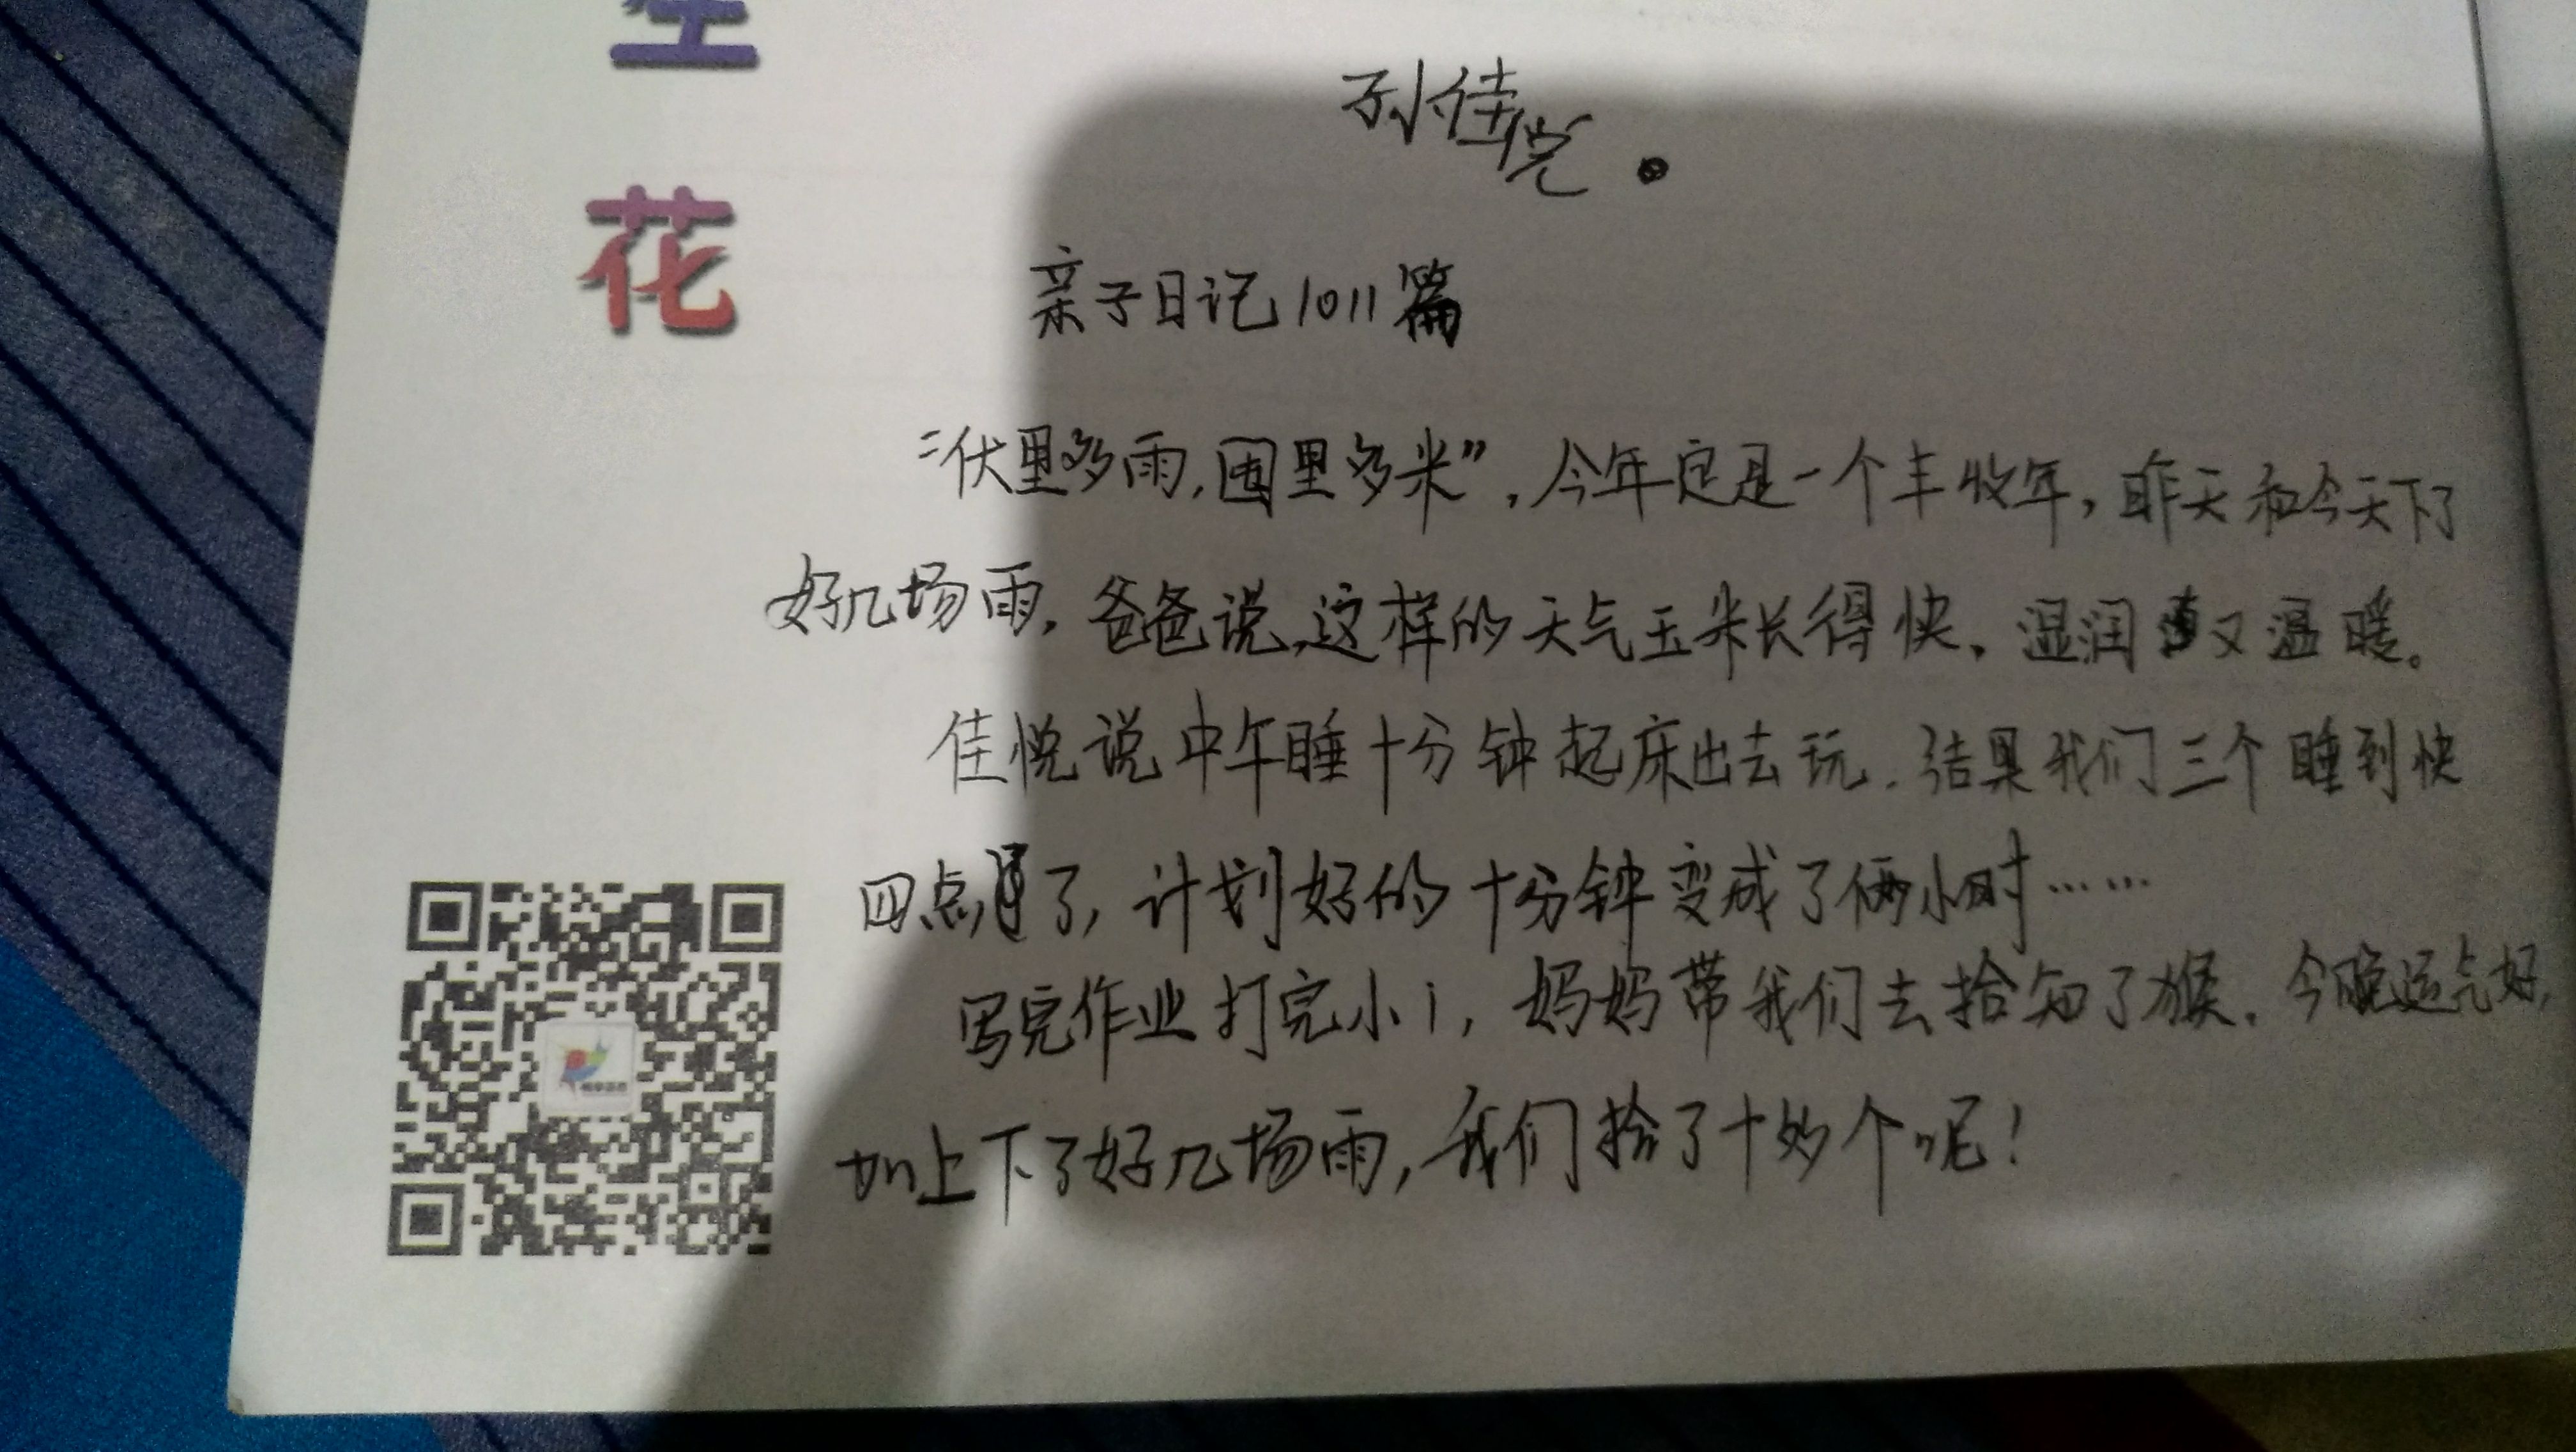 花
孙佳悦。
亲子日记1011篇
“伏里多雨,囤里多米”,今年定是一个丰收年,昨天和今天下了
好几场雨,爸爸说,这样的天气玉米长得快,湿润又温暖。
佳悦说中午睡十分钟起床出去玩.结果我们三个睡到快
四点了,计划好的十分钟变成了俩小时……
写完作业打完小i,妈妈带我们去拾知了猴.今晚运气好,
加上下了好几场雨,我们拾了十多个呢!